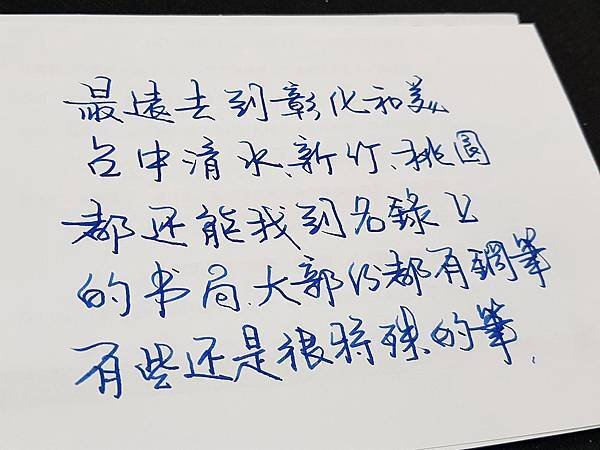 最遠去到彰化和美
台中清水、新竹、桃園
都还能找到名錄上
的书局、大部份都有鋼筆
有些还是很特殊的筆.